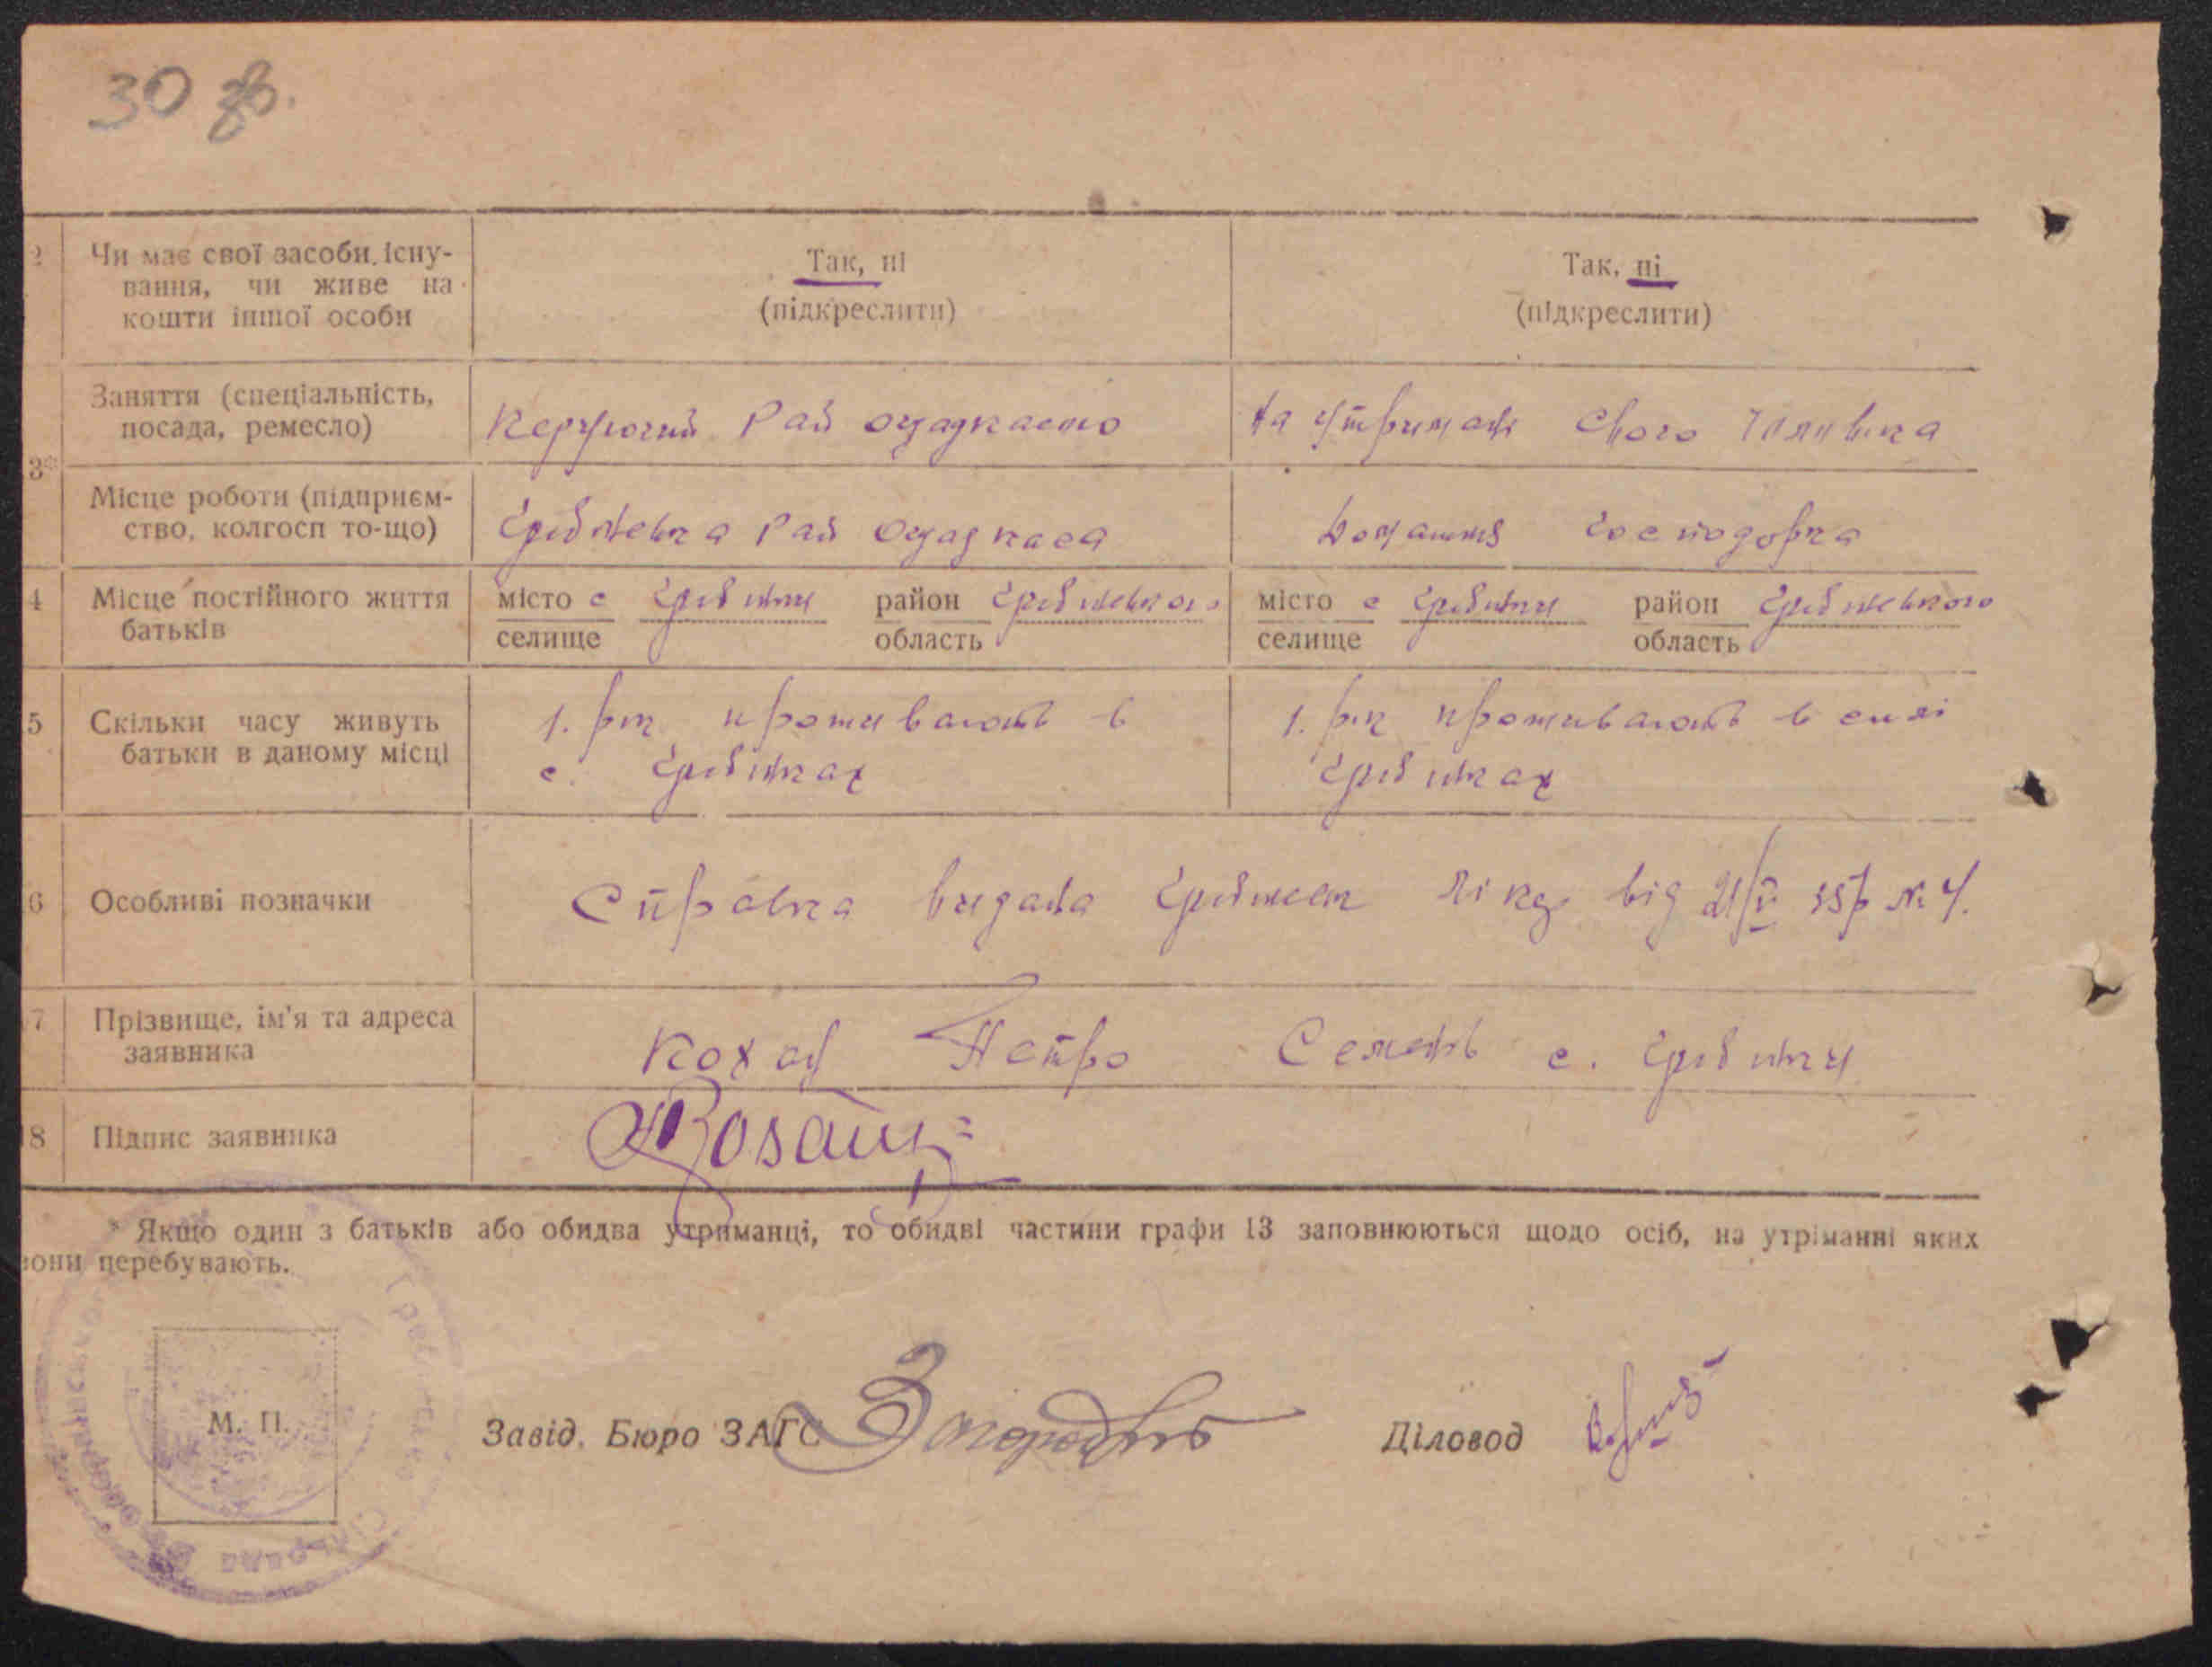 30 зв.
2 Чи має свої засоби існу-
вання, чи живе на
кошти іншої особи
Так, ні
(підкреслити)
Так, ні
(підкреслити)
3*
Заняття (спеціальність,
посада, ремесло)
Керуючий Рай ощадкасою
На утриман свого чоловіка
Місце роботи (підприєм-
ство, колгосп то-що)
Рай Ощадкаса
Домашня господарка
4 Місце постійного життя
батьків
місто с Гребінки район
селище область
місто с Гребінки район
селище область
5 Скільки часу живуть
батьки в даному місці
1. рік проживають в
с. Гребінках
1. рік проживають в силі
Гребінках
6 Особливі позначки
Справка видана лікар від 21/V 35р № 4.
7 Прізвище, ім'я та адреса
заявника
Петро с. Гребінки
8 Підпис заявника
* Якщо один з батьків або обидва утриманці, то обидві частини графи 13 заповнюються щодо осіб, на утріманні яких
вони перебувають.
М. П.
Завід. Бюро ЗАГС
Діловод